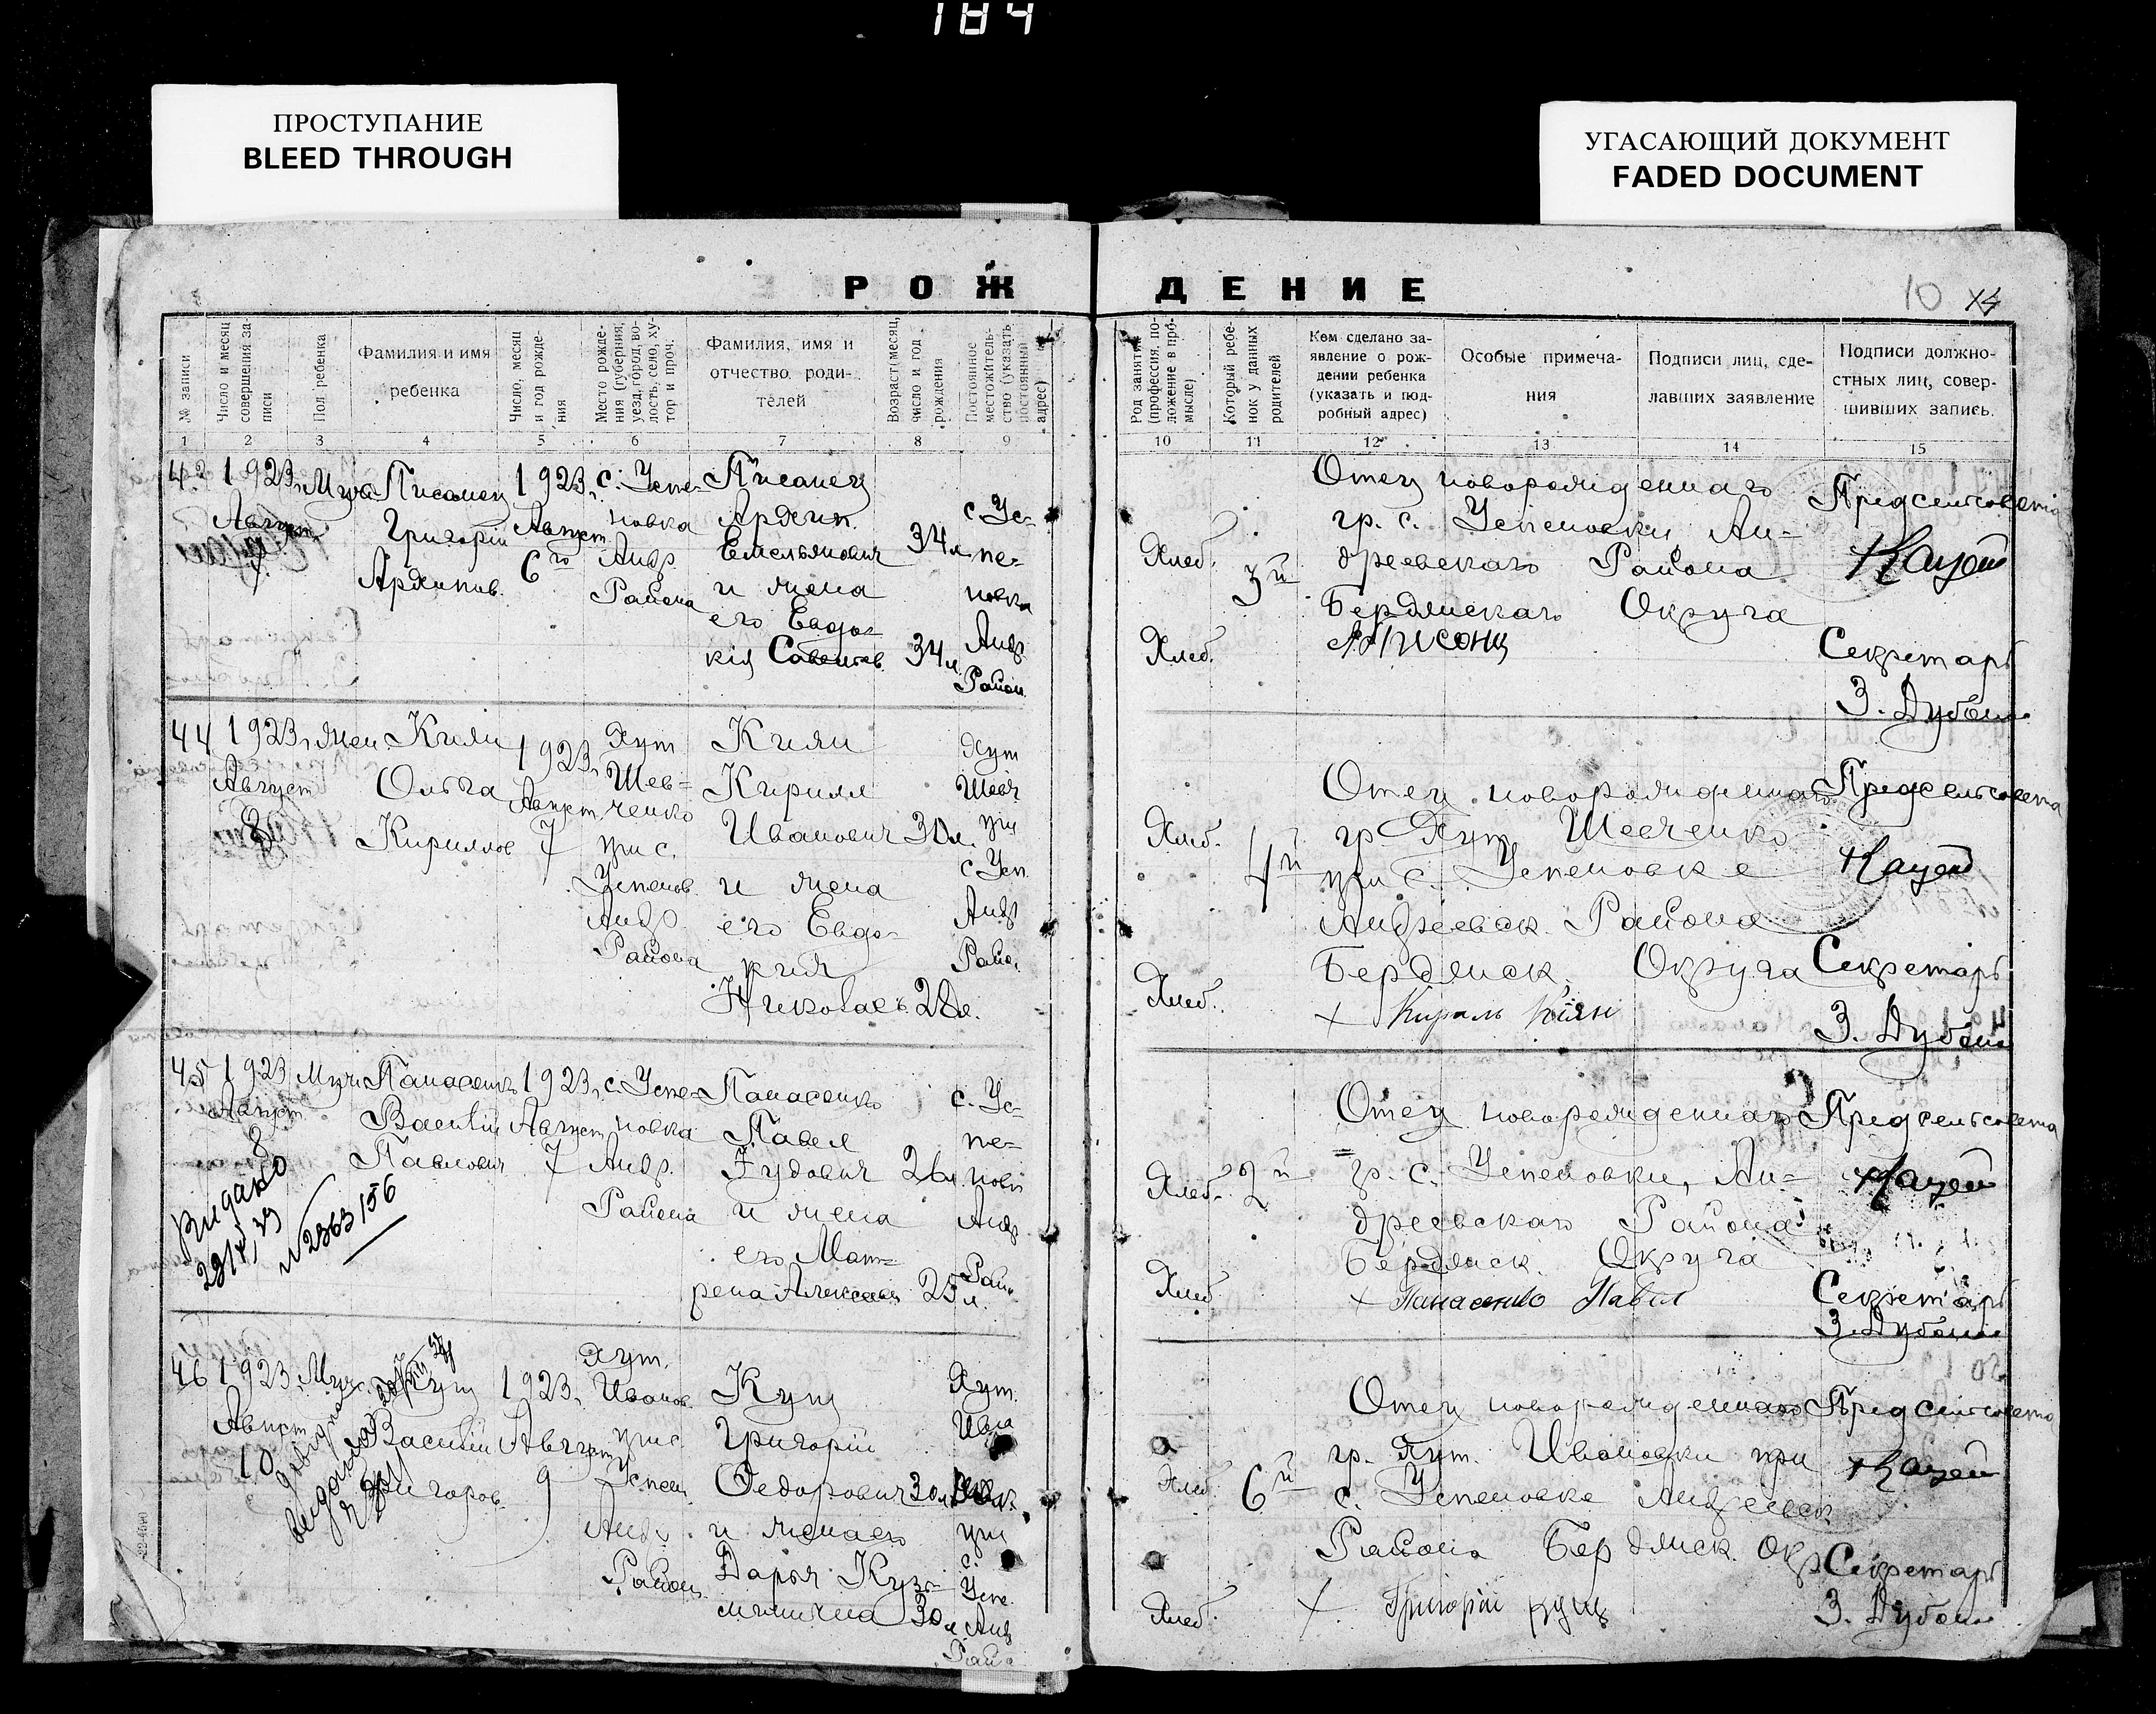 184
ПРОСТУПАНИЕ
BLEED THROUGH
УГАСАЮЩИЙ ДОКУМЕНТ
FADED DOCUMENT
РОЖДЕНИЕ
10 14
№ записи
Число и месяц
совершения за-
писи
Пол ребенка
Фамилия и имя
ребенка
Число, месяц
и год рожде-
ния
Место рожде-
ния (губерния,
уезд, город, во-
лость, село, ху-
тор и проч.
Фамилия, имя и
отчество роди-
телей
Возраст месяц,
число и год
рождения
Постоянное
местожитель-
ство (указать
постоянный
адрес)
Род занятий
(профессия, по-
ложение в про-
мысле)
Который ребе-
нок у данных
родителей
Кем сделано за-
явление о рож-
дении ребенка
(указать и под-
робный адрес)
Особые примеча-
ния
Подписи лиц, сде-
лавших заявление
Подписи должно-
стных лиц, совер-
шивших запись.
1 2 3 4 5 6 7 8 9 10 11 12 13 14 15
1923г.
Август
7
Писанец
Григорій
Архипов.
1923г.
Август
6го
с. Успе-
новка
Андр.
Района
Писанец
Архип
Емельянович
и жена
его Евдо-
кія
34л.
34л.
с. Ус-
пе-
новка
Андр
Район.
Хлеб.
Хлеб.
3й
Отец новорожденнаго
гр. с. Успеновки, Ан-
дреевскаго Района
Бердянскаго Округа
Писонц
Предсельсовета
Секретарь
З.
44
1923г.
Август
8
жен.
Киян
Ольга
Кириллов
1923г.
Август
7
Хут
Шев-
ченко
при с.
Успенов.
Андр.
Района
Киян
Кирилл
Иванович
и жена
его Евдо-
кия
Николаев.
28л.
Хут
Шевч
при
с. Усп.
Андр
Район.
Хлеб.
Хлеб.
4й
Отец новорожденнаго
гр Хут. Шевченко
при с. Успеновке
Андреевск. Района
Бердянск. Округа
+ Кирило Киян
Предсельсовета
Секретарь
З.
45
1923
Август
8
Муж.
Панасенко
Василій
Павлович
1923г.
Август
7
с. Успе-
новка
Андр.
Района
Панасенко
Павел
Гудович
и жена
его Мат-
рена Алексеевн
26л.
25л.
с. Ус-
пе-
нов
Андр
Район
Видано
N 2363156
Хлеб.
Хлеб
2й
Отец новорожденнаго
гр. с. Успеновки, Ан-
дреевскаго Района
Бердянск. Округа
+ Панасенко Павел
Предсельсовета
Секретарь
З.
46
1923г.
Август
10
Муж.
Куц
Василій
Григоров.
1923г.
Август
9
Хут.
Иванов.
при с
Успен.
Андр.
Район.
Куц
Григорій
Федорович
и жена его
Дарья Кузь-
минична
30л.
30л.
Хут.
Ивна
при
с.
Успе.
Андр
Райна
Хлеб
Хлеб.
6й
Отец новорожденнаго
гр. Хут. Ивановки при
с. Успеновке Андреевск
Района Бердянск. Окр
+ Григорій Куц
Предсельсовета
Секретарь
З.